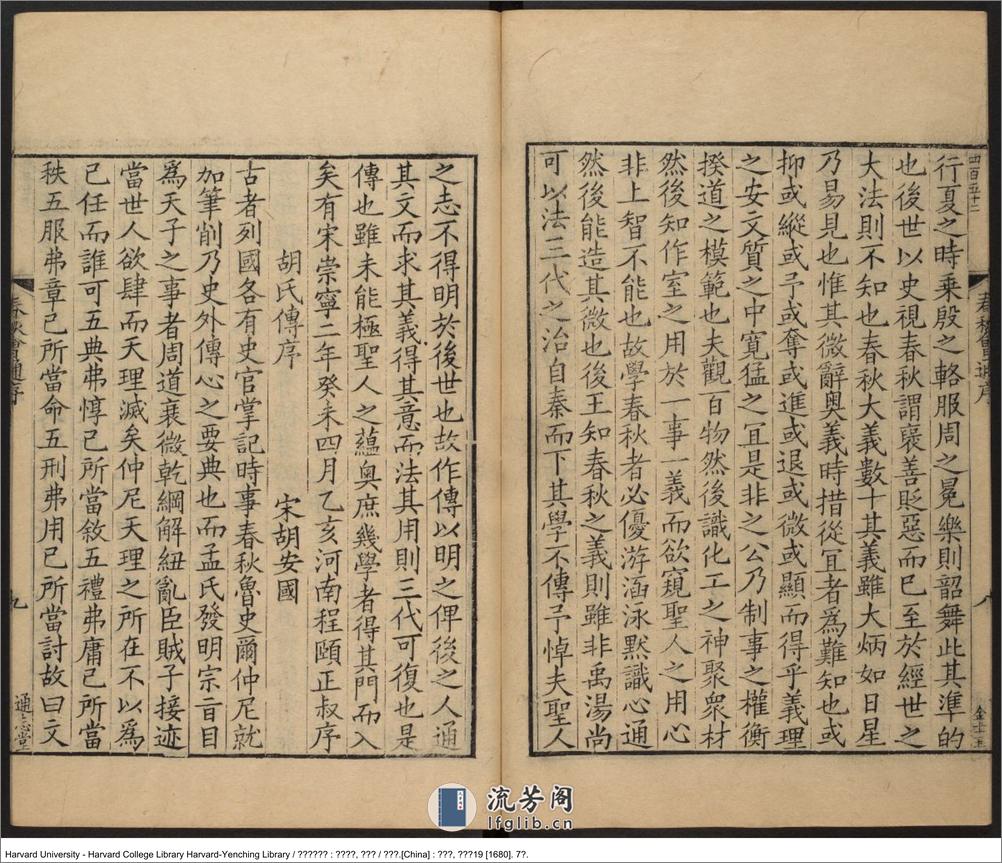 四百五十二
春秋會通序
八
行夏之時乘殷之輅服周之冕樂則韶舞此其準的
也後世以史視春秋謂襃善貶惡而已至於經世之
大法則不知也春秋大義數十其義雖大炳如日星
乃易見也惟其微辭奧義時措從冝者為難知也或
抑或縱或予或奪或進或退或微或顯而得乎義理
之安文質之中寛猛之冝是非之公乃制事之權衡
揆道之模範也夫觀百物然後識化工之神聚衆材
然後知作室之用於一事一義而欲窺聖人之用心
非上智不能也故學春秋者必優游涵泳默識心通
然後能造其微也後王知春秋之義則雖非禹湯尚
可以法三代之治自秦而下其學不傳予悼夫聖人
之志不得明於後世也故作傳以明之俾後之人通
其文而求其義得其意而法其用則三代可復也是
傳也雖未能極聖人之蘊奧庶幾學者得其門而入
矣有宋崇寧二年癸未四月乙亥河南程頤正叔序
胡氏傳序
宋胡安國
古者列國各有史官掌記時事春秋魯史爾仲尼就
加筆削乃史外傳心之要典也而孟氏發明宗㫖目
爲天子之事者周道衰微乾綱解紐亂臣賊子接迹
當世人欲肆而天理滅矣仲尼天理之所在不以爲
己任而誰可五典弗惇己所當敘五禮弗庸己所當
秩五服弗章己所當命五刑弗用己所當討故曰文
春秋會通序
九
通志堂
流芳阁
lfglib.cn
Harvard University - Harvard College Library Harvard-Yenching Library / ?????? : ????, ??? / ???.[China] : ???, ???19 [1680]. 7?.